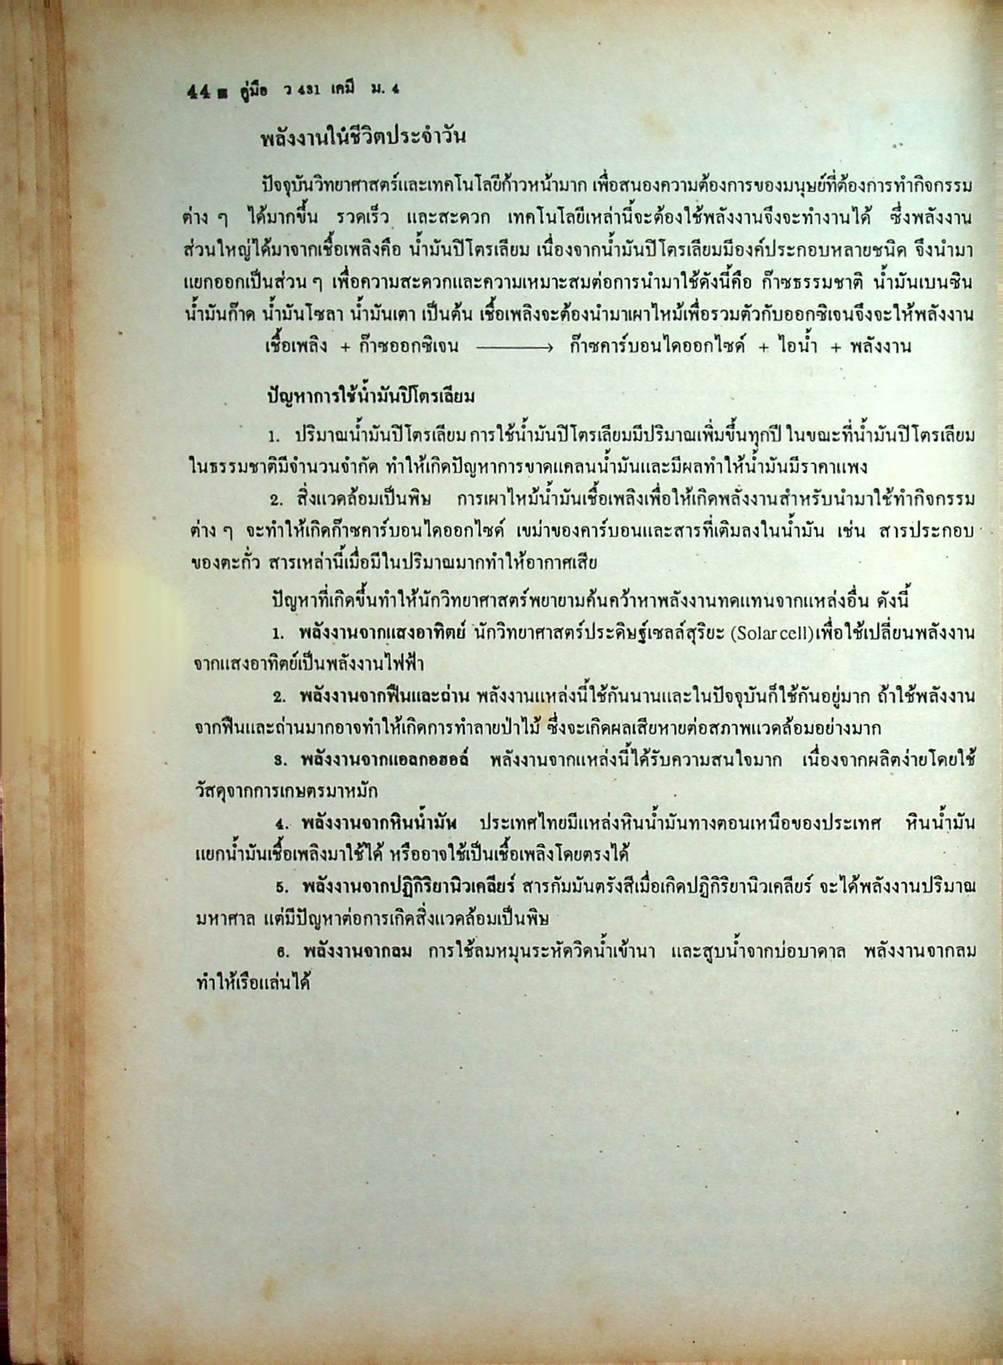 44 ■ คู่มือ ว 431 เคมี ม. 4
พลังงานในชีวิตประจำวัน
ปัจจุบันวิทยาศาสตร์และเทคโนโลยีก้าวหน้ามาก เพื่อสนองความต้องการของมนุษย์ที่ต้องการทำกิจกรรม
ต่าง ๆ ได้มากขึ้น รวดเร็ว และสะดวก เทคโนโลยีเหล่านี้จะต้องใช้พลังงานจึงจะทำงานได้ ซึ่งพลังงาน
ส่วนใหญ่ได้มาจากเชื้อเพลิงคือ น้ำมันปิโตรเลียม เนื่องจากน้ำมันปิโตรเลียมมีองค์ประกอบหลายชนิด จึงนำมา
แยกออกเป็นส่วน ๆ เพื่อความสะดวกและความเหมาะสมต่อการนำมาใช้ดังนี้คือ ก๊าซธรรมชาติ น้ำมันเบนซิน
น้ำมันก๊าด น้ำมันโซลา น้ำมันเตา เป็นต้น เชื้อเพลิงจะต้องนำมาเผาไหม้เพื่อรวมตัวกับออกซิเจนจึงจะให้พลังงาน
เชื้อเพลิง + ก๊าซออกซิเจน ⟶ ก๊าซคาร์บอนไดออกไซด์ + ไอน้ำ + พลังงาน
ปัญหาการใช้น้ำมันปิโตรเลียม
1. ปริมาณน้ำมันปิโตรเลียม การใช้น้ำมันปิโตรเลียมมีปริมาณเพิ่มขึ้นทุกปี ในขณะที่น้ำมันปิโตรเลียม
ในธรรมชาติมีจำนวนจำกัด ทำให้เกิดปัญหาการขาดแคลนน้ำมันและมีผลทำให้น้ำมันมีราคาแพง
2. สิ่งแวดล้อมเป็นพิษ การเผาไหม้น้ำมันเชื้อเพลิงเพื่อให้เกิดพลังงานสำหรับนำมาใช้ทำกิจกรรม
ต่าง ๆ จะทำให้เกิดก๊าซคาร์บอนไดออกไซด์ เขม่าของคาร์บอนและสารที่เติมลงในน้ำมัน เช่น สารประกอบ
ของตะกั่ว สารเหล่านี้เมื่อมีในปริมาณมากทำให้อากาศเสีย
ปัญหาที่เกิดขึ้นทำให้นักวิทยาศาสตร์พยายามค้นคว้าหาพลังงานทดแทนจากแหล่งอื่น ดังนี้
1. พลังงานจากแสงอาทิตย์ นักวิทยาศาสตร์ประดิษฐ์เซลล์สุริยะ (Solar cell) เพื่อใช้เปลี่ยนพลังงาน
จากแสงอาทิตย์เป็นพลังงานไฟฟ้า
2. พลังงานจากฟืนและถ่าน พลังงานแหล่งนี้ใช้กันนานและในปัจจุบันก็ใช้กันอยู่มาก ถ้าใช้พลังงาน
จากฟืนและถ่านมากอาจทำให้เกิดการทำลายป่าไม้ ซึ่งจะเกิดผลเสียหายต่อสภาพแวดล้อมอย่างมาก
3. พลังงานจากแอลกอฮอล์ พลังงานจากแหล่งนี้ได้รับความสนใจมาก เนื่องจากผลิตง่ายโดยใช้
วัสดุจากการเกษตรมาหมัก
4. พลังงานจากหินน้ำมัน ประเทศไทยมีแหล่งหินน้ำมันทางตอนเหนือของประเทศ หินน้ำมัน
แยกน้ำมันเชื้อเพลิงมาใช้ได้ หรืออาจใช้เป็นเชื้อเพลิงโดยตรงได้
5. พลังงานจากปฏิกิริยานิวเคลียร์ สารกัมมันตรังสีเมื่อเกิดปฏิกิริยานิวเคลียร์ จะได้พลังงานปริมาณ
มหาศาล แต่มีปัญหาต่อการเกิดสิ่งแวดล้อมเป็นพิษ
6. พลังงานจากลม การใช้ลมหมุนระหัดวิดน้ำเข้านา และสูบน้ำจากบ่อบาดาล พลังงานจากลม
ทำให้เรือแล่นได้